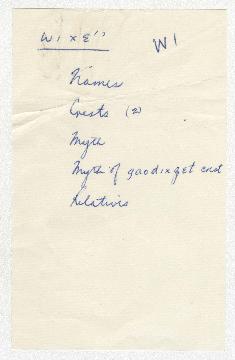 WIXE'' WI
Names
Crests (2)
Myth
Myth of good x get
Relatives